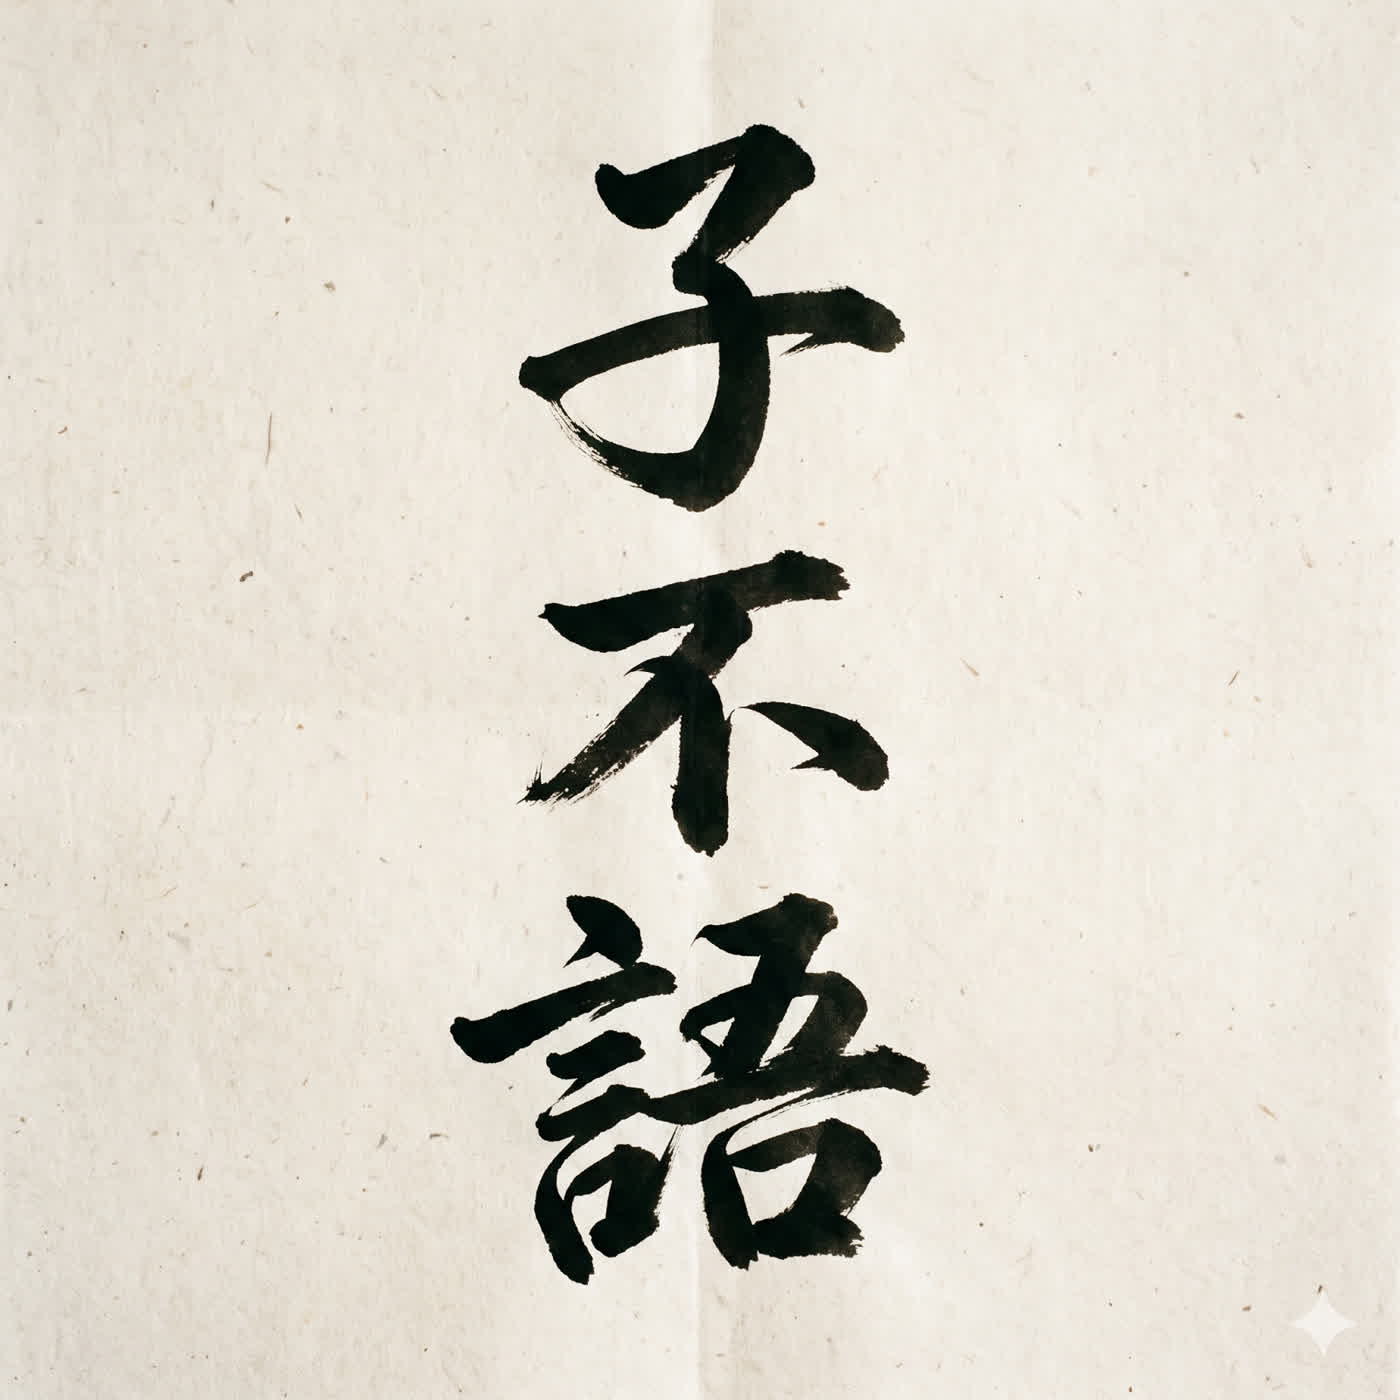 子不語